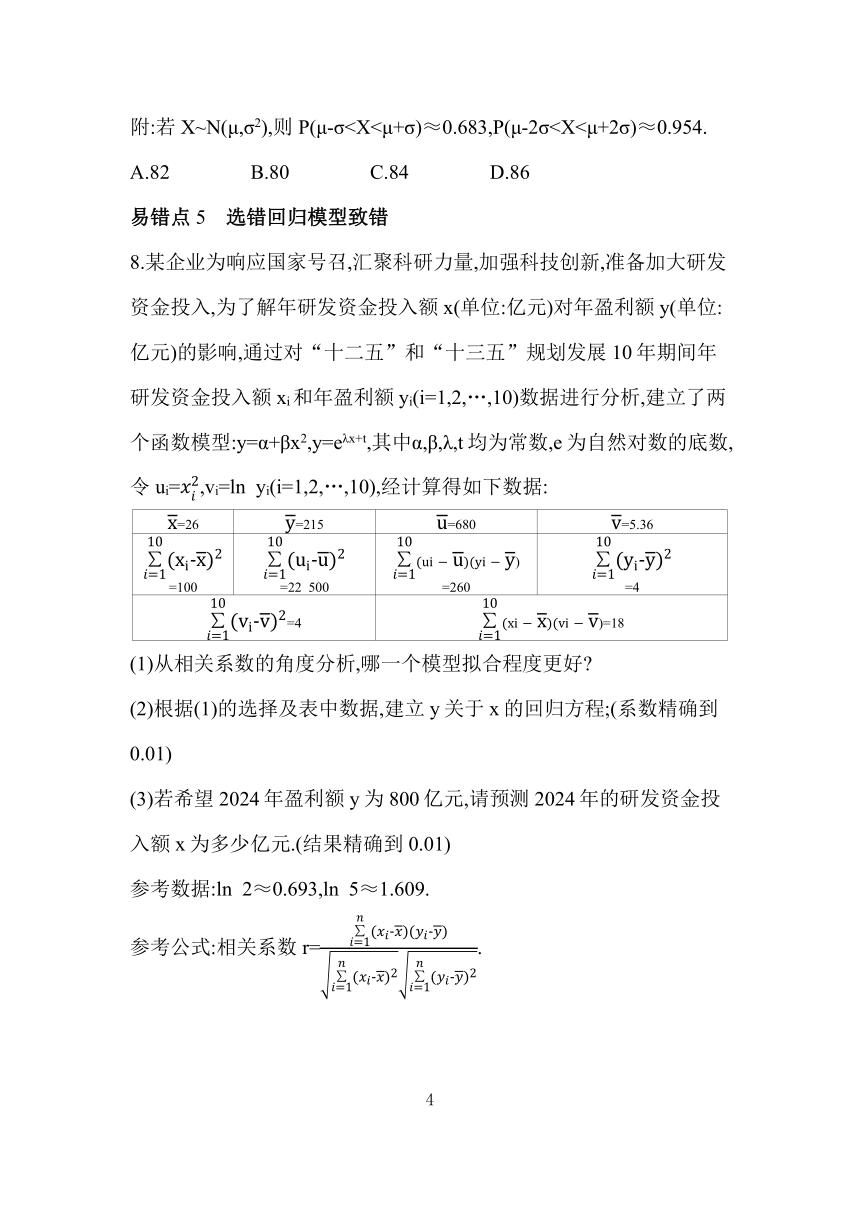 附:若 X~N(μ,σ²),则 P(μ-σ<X<μ+σ)≈0.683,P(μ-2σ<X<μ+2σ)≈0.954.
A.82 B.80 C.84 D.86
易错点 5 选错回归模型致错
8.某企业为响应国家号召,汇聚科研力量,加强科技创新,准备加大研发
资金投入,为了解年研发资金投入额 x(单位:亿元)对年盈利额 y(单位:
亿元)的影响,通过对“十二五”和“十三五”规划发展 10 年期间年
研发资金投入额 xᵢ和年盈利额 yᵢ(i=1,2,…,10)数据进行分析,建立了两
个函数模型:y=α+βx²,y=e^{λx+t},其中α,β,λ,t 均为常数,e 为自然对数的底数,
令 uᵢ=x_i^2,vᵢ=ln yᵢ(i=1,2,…,10),经计算得如下数据:
x̅=26 y̅=215 u̅=680 v̅=5.36
∑_{i=1}^{10}(xᵢ-x̅)²=100 ∑_{i=1}^{10}(uᵢ-u̅)²=22 500 ∑_{i=1}^{10}(ui − u̅)(yi − y̅)=260 ∑_{i=1}^{10}(yᵢ-y̅)²=4
∑_{i=1}^{10}(vᵢ-v̅)²=4 ∑_{i=1}^{10}(xi − x̅)(vi − v̅)=18
(1)从相关系数的角度分析,哪一个模型拟合程度更好?
(2)根据(1)的选择及表中数据,建立 y 关于 x 的回归方程;(系数精确到
0.01)
(3)若希望 2024 年盈利额 y 为 800 亿元,请预测 2024 年的研发资金投
入额 x 为多少亿元.(结果精确到 0.01)
参考数据:ln 2≈0.693,ln 5≈1.609.
参考公式:相关系数 r=\frac{∑_{i=1}^{n}(x_i-x̅)(y_i-y̅)}{\sqrt{∑_{i=1}^{n}(x_i-x̅)^2}\sqrt{∑_{i=1}^{n}(y_i-y̅)^2}}.
4